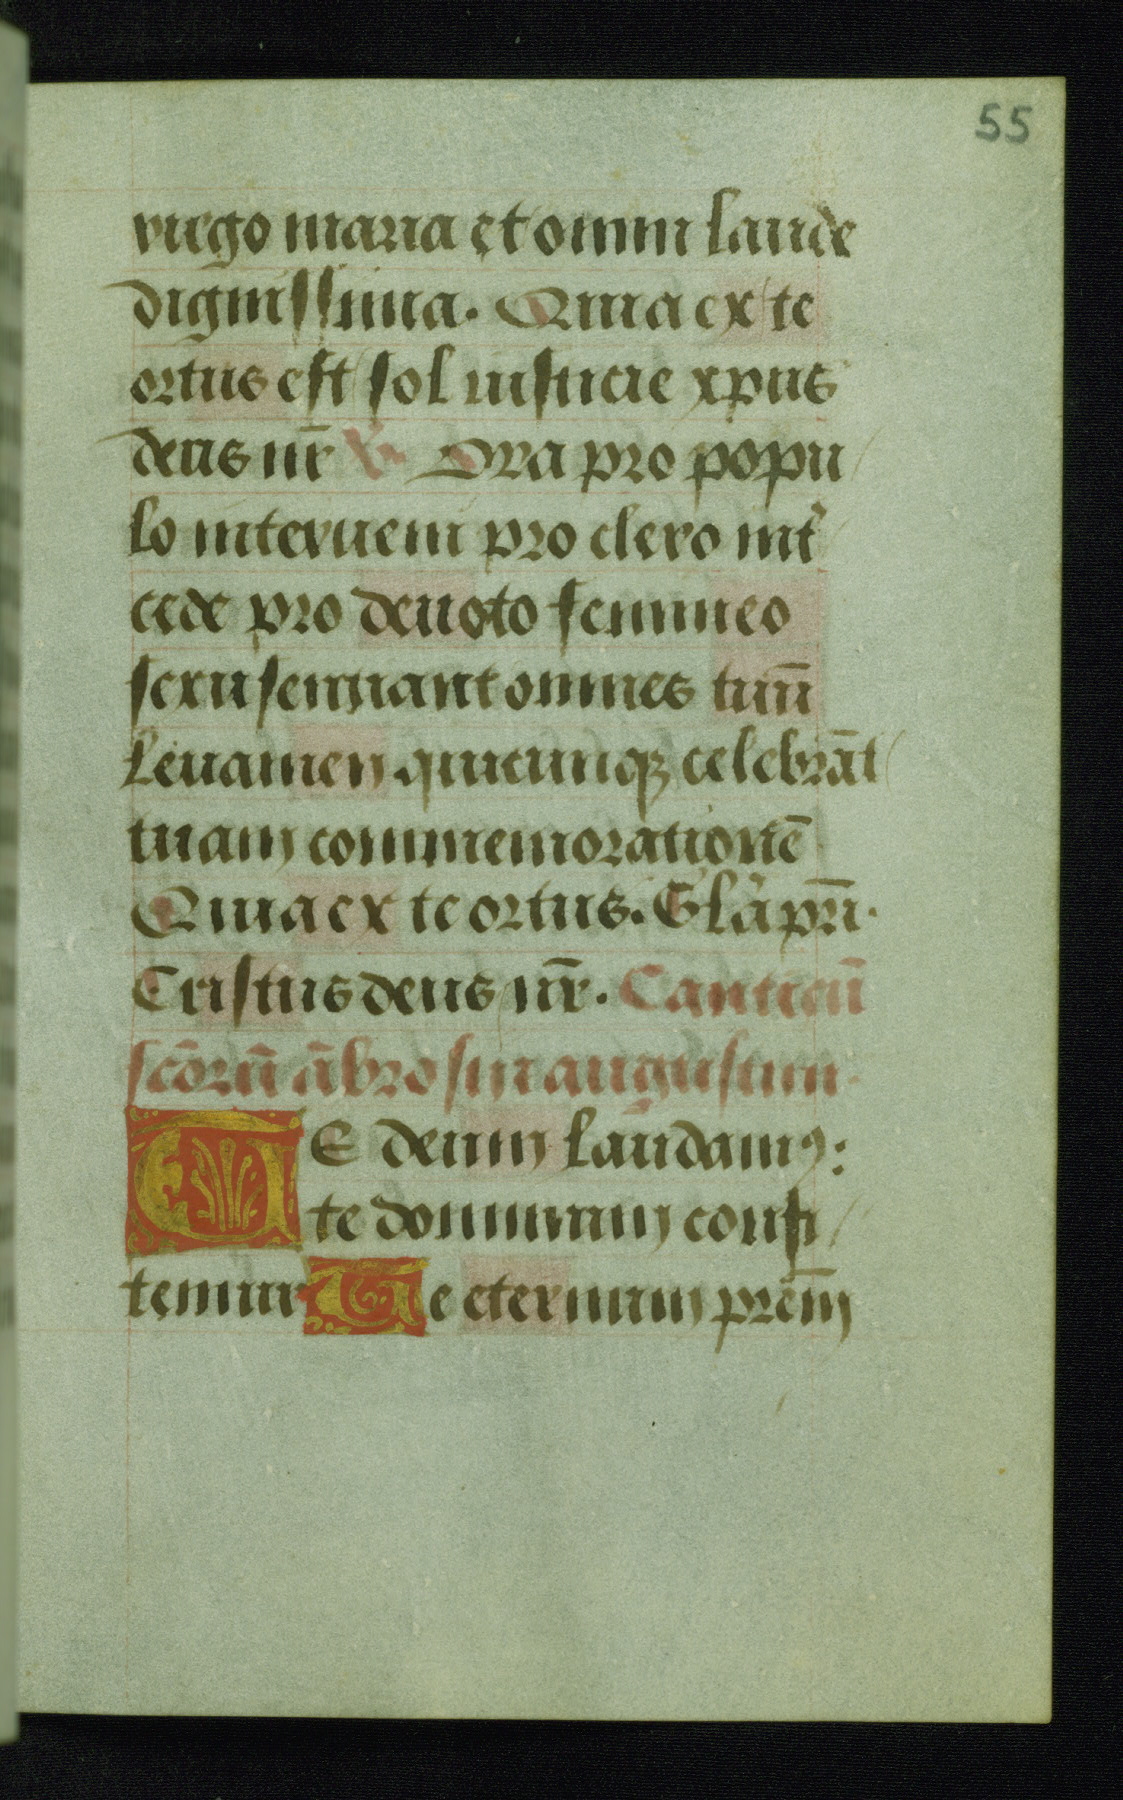 55
virgo maria et omni laude
dignissima. Quia ex te
ortus est sol iusticie xpus
deus nr̄ V. Ora pro popu
lo interueni pro clero int̾
cede pro deuoto femineo
sexu sentiant omnes tuū
leuamen quicunqꝫ celebrāt
tuam commemorationē
Quia ex te ortus. Gl̾a pr̄i.
Cristus deus nr̄. Canticū
scōrū ābrosii augustini
TE deum laudamꝰ:
te dominum confi
temur Te eternum prēm